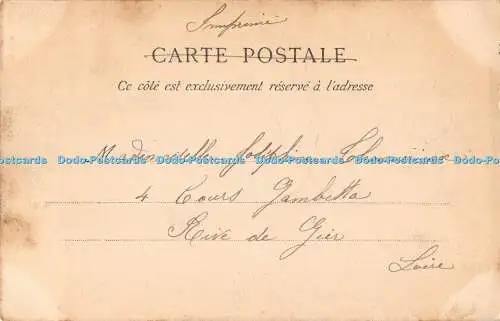 Imprimé
CARTE POSTALE
Ce côté est exclusivement réservé à l'adresse
Mademoiselle
Dodo-Postcards Dodo-Postcards Dodo-Postcards Dodo-Postcards Dodo-Postcards
4 Cours Gambetta
Rive de Gier
Loire